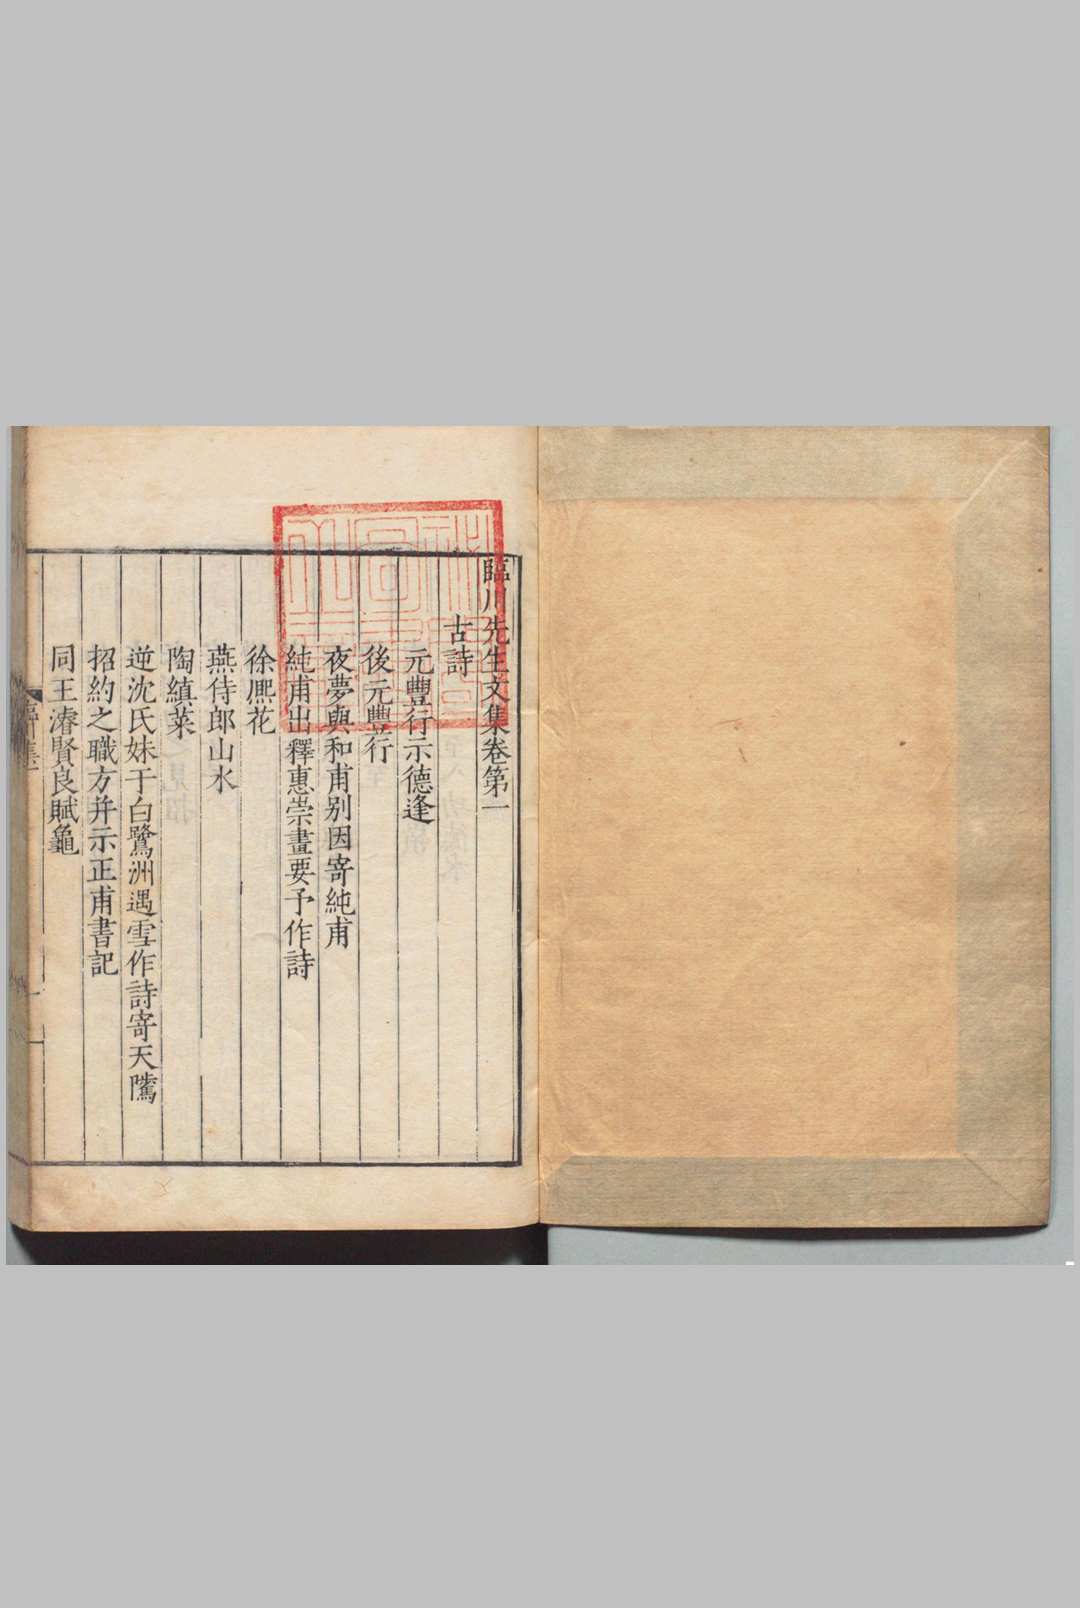 臨川先生文集卷第一
古詩
元豐行示德逢
後元豐行
夜夢與和甫別因寄純甫
純甫出釋惠崇畫要予作詩
徐熈花
燕待郎山水
陶縝菜
逆沈氏妹于白鷺洲遇雪作詩寄天隲
招約之職方并示正甫書記
同王濬賢良賦龜